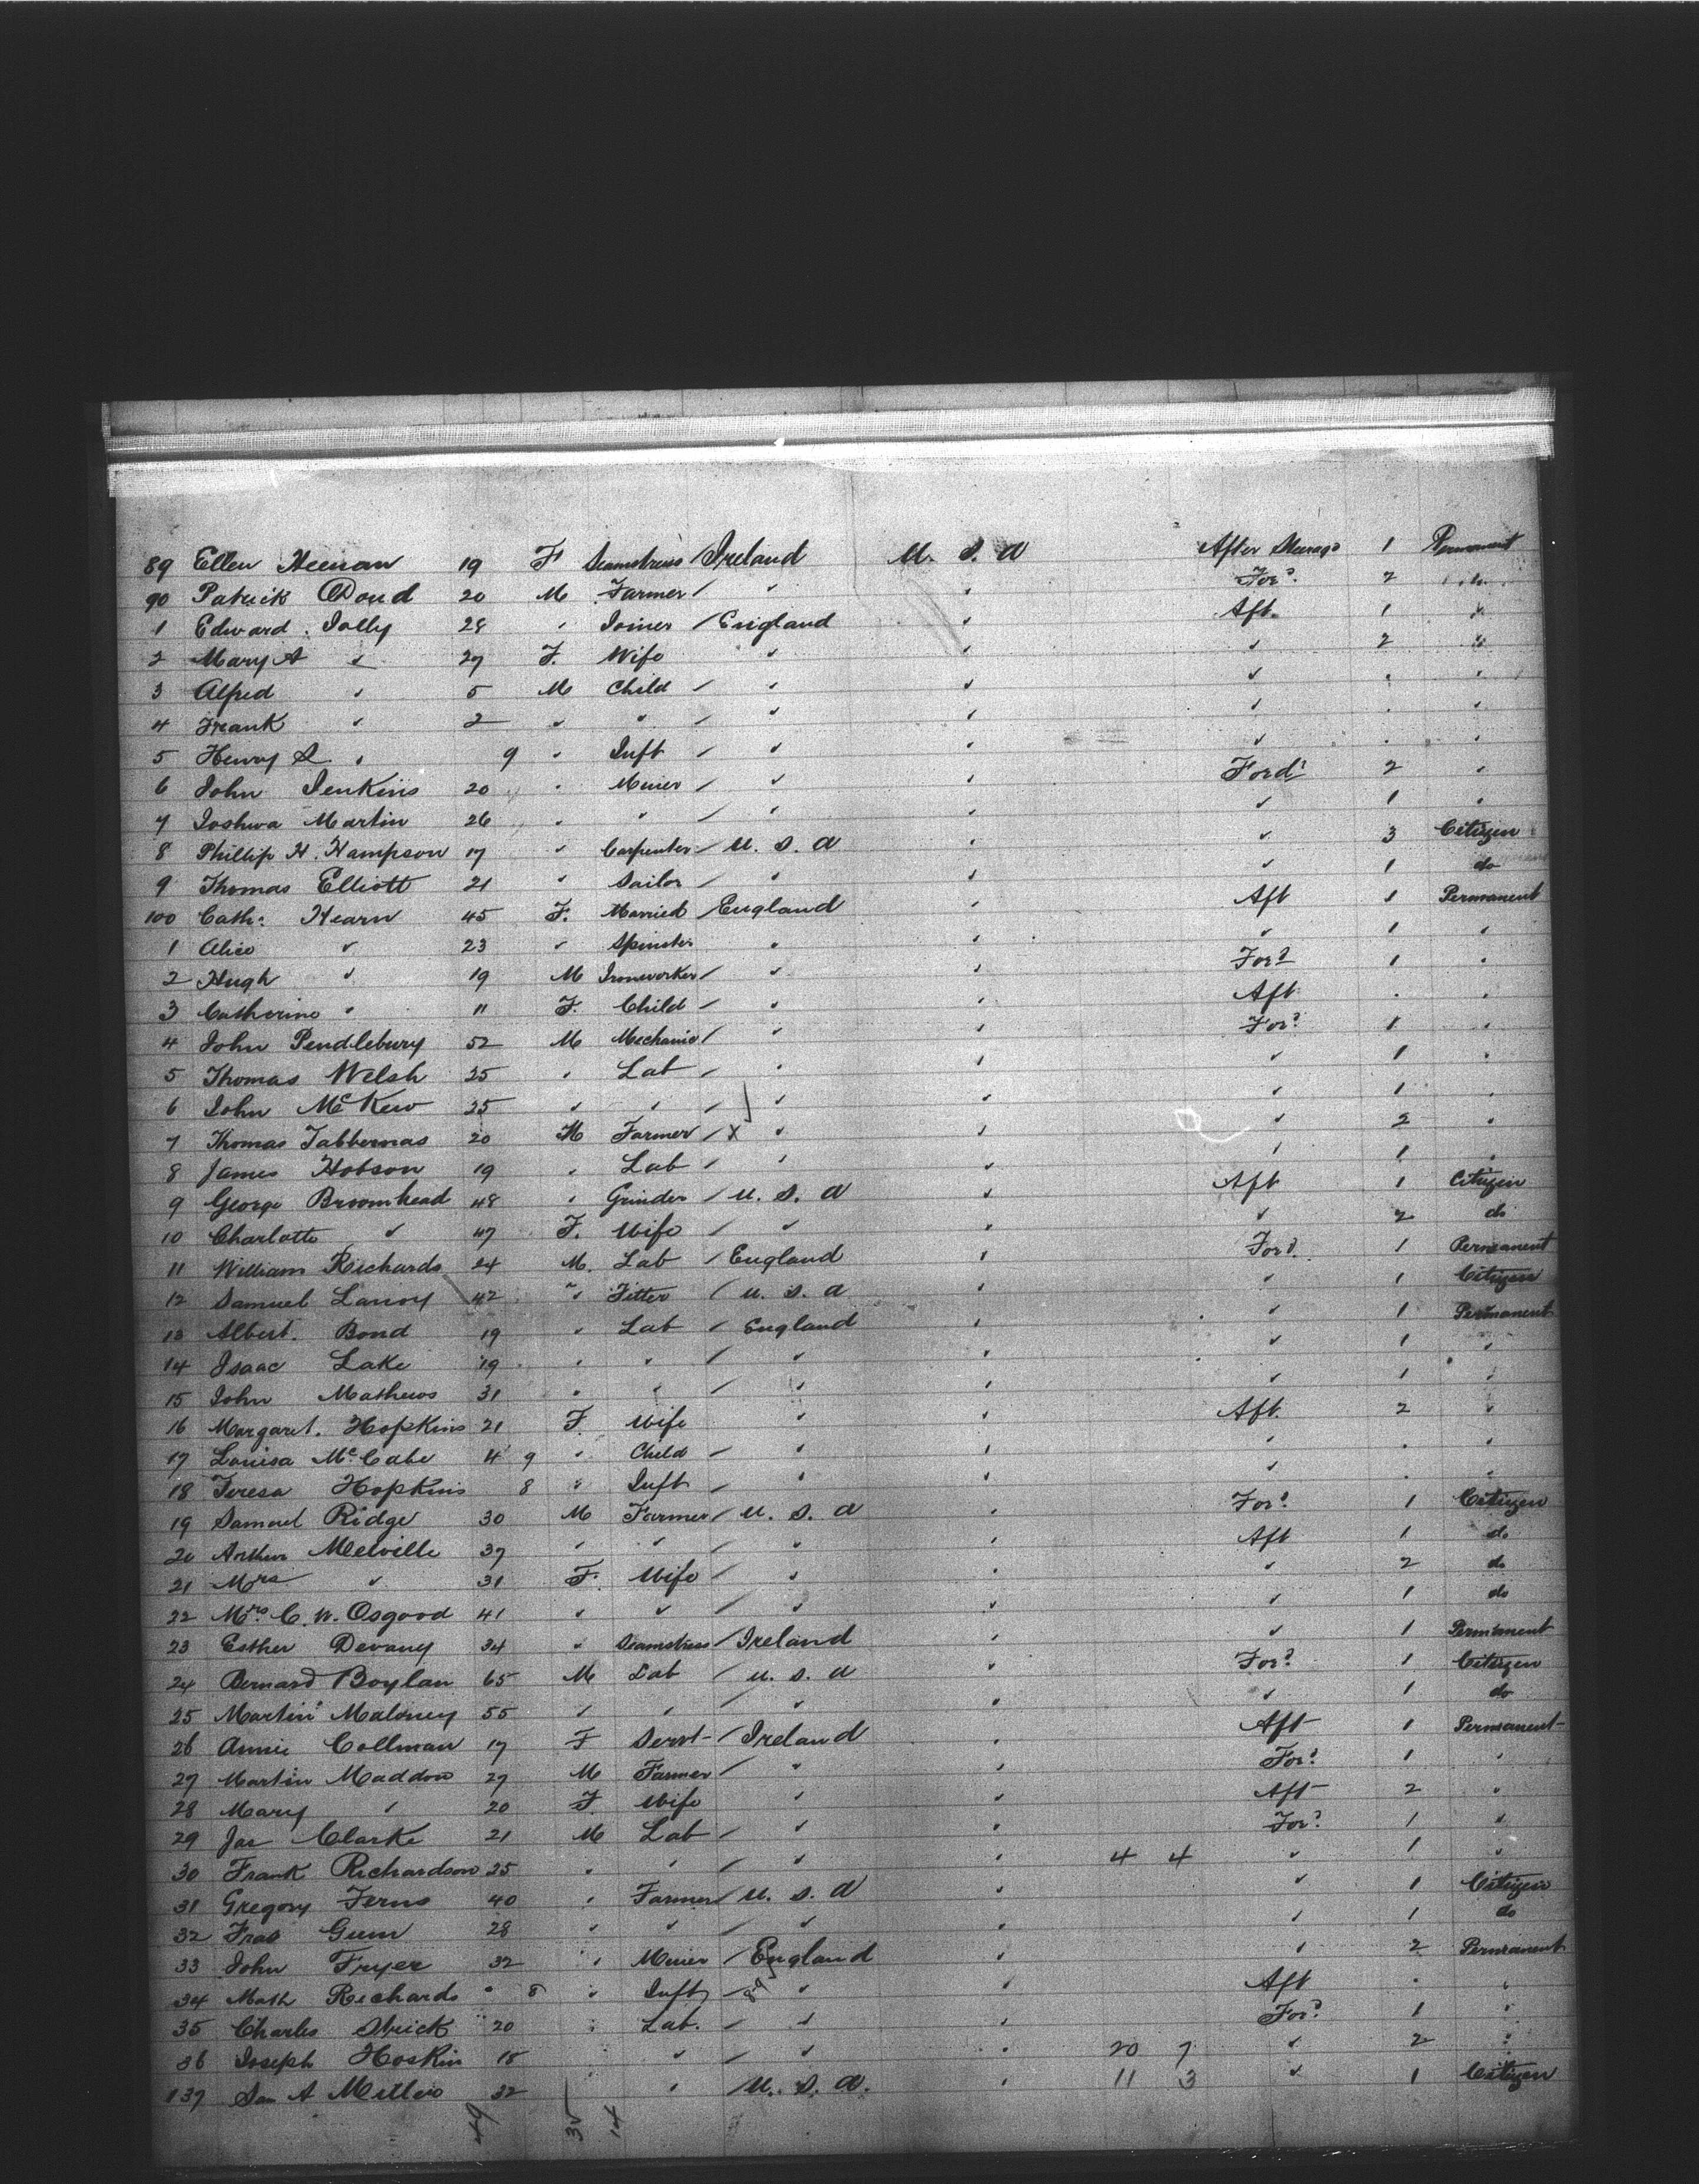 89 Ellen Heenan 19 F Seamstress / Ireland U. S. A After Steerage 1 Permanent
90 Patrick Doud 20 M Farmer / " " For'd 2 "
1 Edward Jolly 28 " Joiner / England " Aft. 1 "
2 Mary A " 27 F. Wife " " " 2 "
3 Alfred " 5 M Child / " " " " "
4 Frank " 2 " " / " " " " "
5 Henry S " 9 " Inft / " " " " "
6 John Jenkins 20 " Miner / " " Ford 2 "
7 Joshua Martin 26 " " / " " " 1 "
8 Phillip H. Hampson 17 " Carpenter / U. S. A " " 3 Citizen
9 Thomas Elliott 21 " Sailor / " " " 1 do
100 Cath: Hearn 45 F. Married / England " Aft 1 Permanent
1 Alice " 23 " Spinster " " " 1 "
2 Hugh " 19 M Ironworker / " " For'd 1 "
3 Catherine " 11 F. Child / " " Aft " "
4 John Pendlebury 52 M Mechanic / " " For'd 1 "
5 Thomas Welsh 25 " Lab / " " " 1 "
6 John McKew 25 " " / " " " 1 "
7 Thomas Tabbernas 20 M Farmer / X " " " 2 "
8 James Hobson 19 " Lab / " " " 1 "
9 George Broomhead 48 " Grinder / U. S. A " Aft 1 Citizen
10 Charlotte " 47 F. Wife / " " " 2 do
11 William Richards 24 M. Lab / England " For'd. 1 Permanent
12 Samuel Lanoy 42 " Fitter / U. S. A " " 1 Citizen
13 Albert. Bond 19 " Lab / England " " 1 Permanent
14 Isaac Lake 19 " " / " " " 1 "
15 John Mathews 31 " " / " " " 1 "
16 Margaret. Hopkins 21 F. Wife " " Aft. 2 "
17 Louisa McCabe 4 9 " Child / " " " " "
18 Teresa Hopkins 8 " Inft / " " " " "
19 Samuel Ridge 30 M Farmer / U. S. A " For'd 1 Citizen
20 Arthur Melville 37 " " " " Aft 1 do
21 Mrs " 31 F. Wife / " " " 2 do
22 Mrs C. W. Osgood 41 " " / " " " 1 do
23 Esther Devany 34 " Seamstress / Ireland " " 1 Permanent
24 Bernard Boylan 65 M Lab / U. S. A " For'd 1 Citizen
25 Martin Maloney 55 " " / " " " 1 do
26 Annie Collman 17 F Servt / Ireland " Aft 1 Permanent
27 Martin Maddon 27 M Farmer / " " For'd 1 "
28 Mary " 20 F. Wife " " Aft 2 "
29 Jas Clarke 21 M Lab / " " For'd 1 "
30 Frank Richardson 25 " " / " " 4 4 " 1 "
31 Gregory Ferns 40 " Farmer / U. S. A " " 1 Citizen
32 Fras Gum 28 " " / " " " 1 do
33 John Fryer 32 " Miner / England " " 2 Permanent
34 Math Richards " 8 " Inft / " " Aft " "
35 Charles Strick 20 " Lab. / " " For'd 1 "
36 Joseph Hoskin 18 " / " " 20 7 " 2 "
137 A 32 " / U. S. A. " 11 3 " 1 Citizen
49 35 14